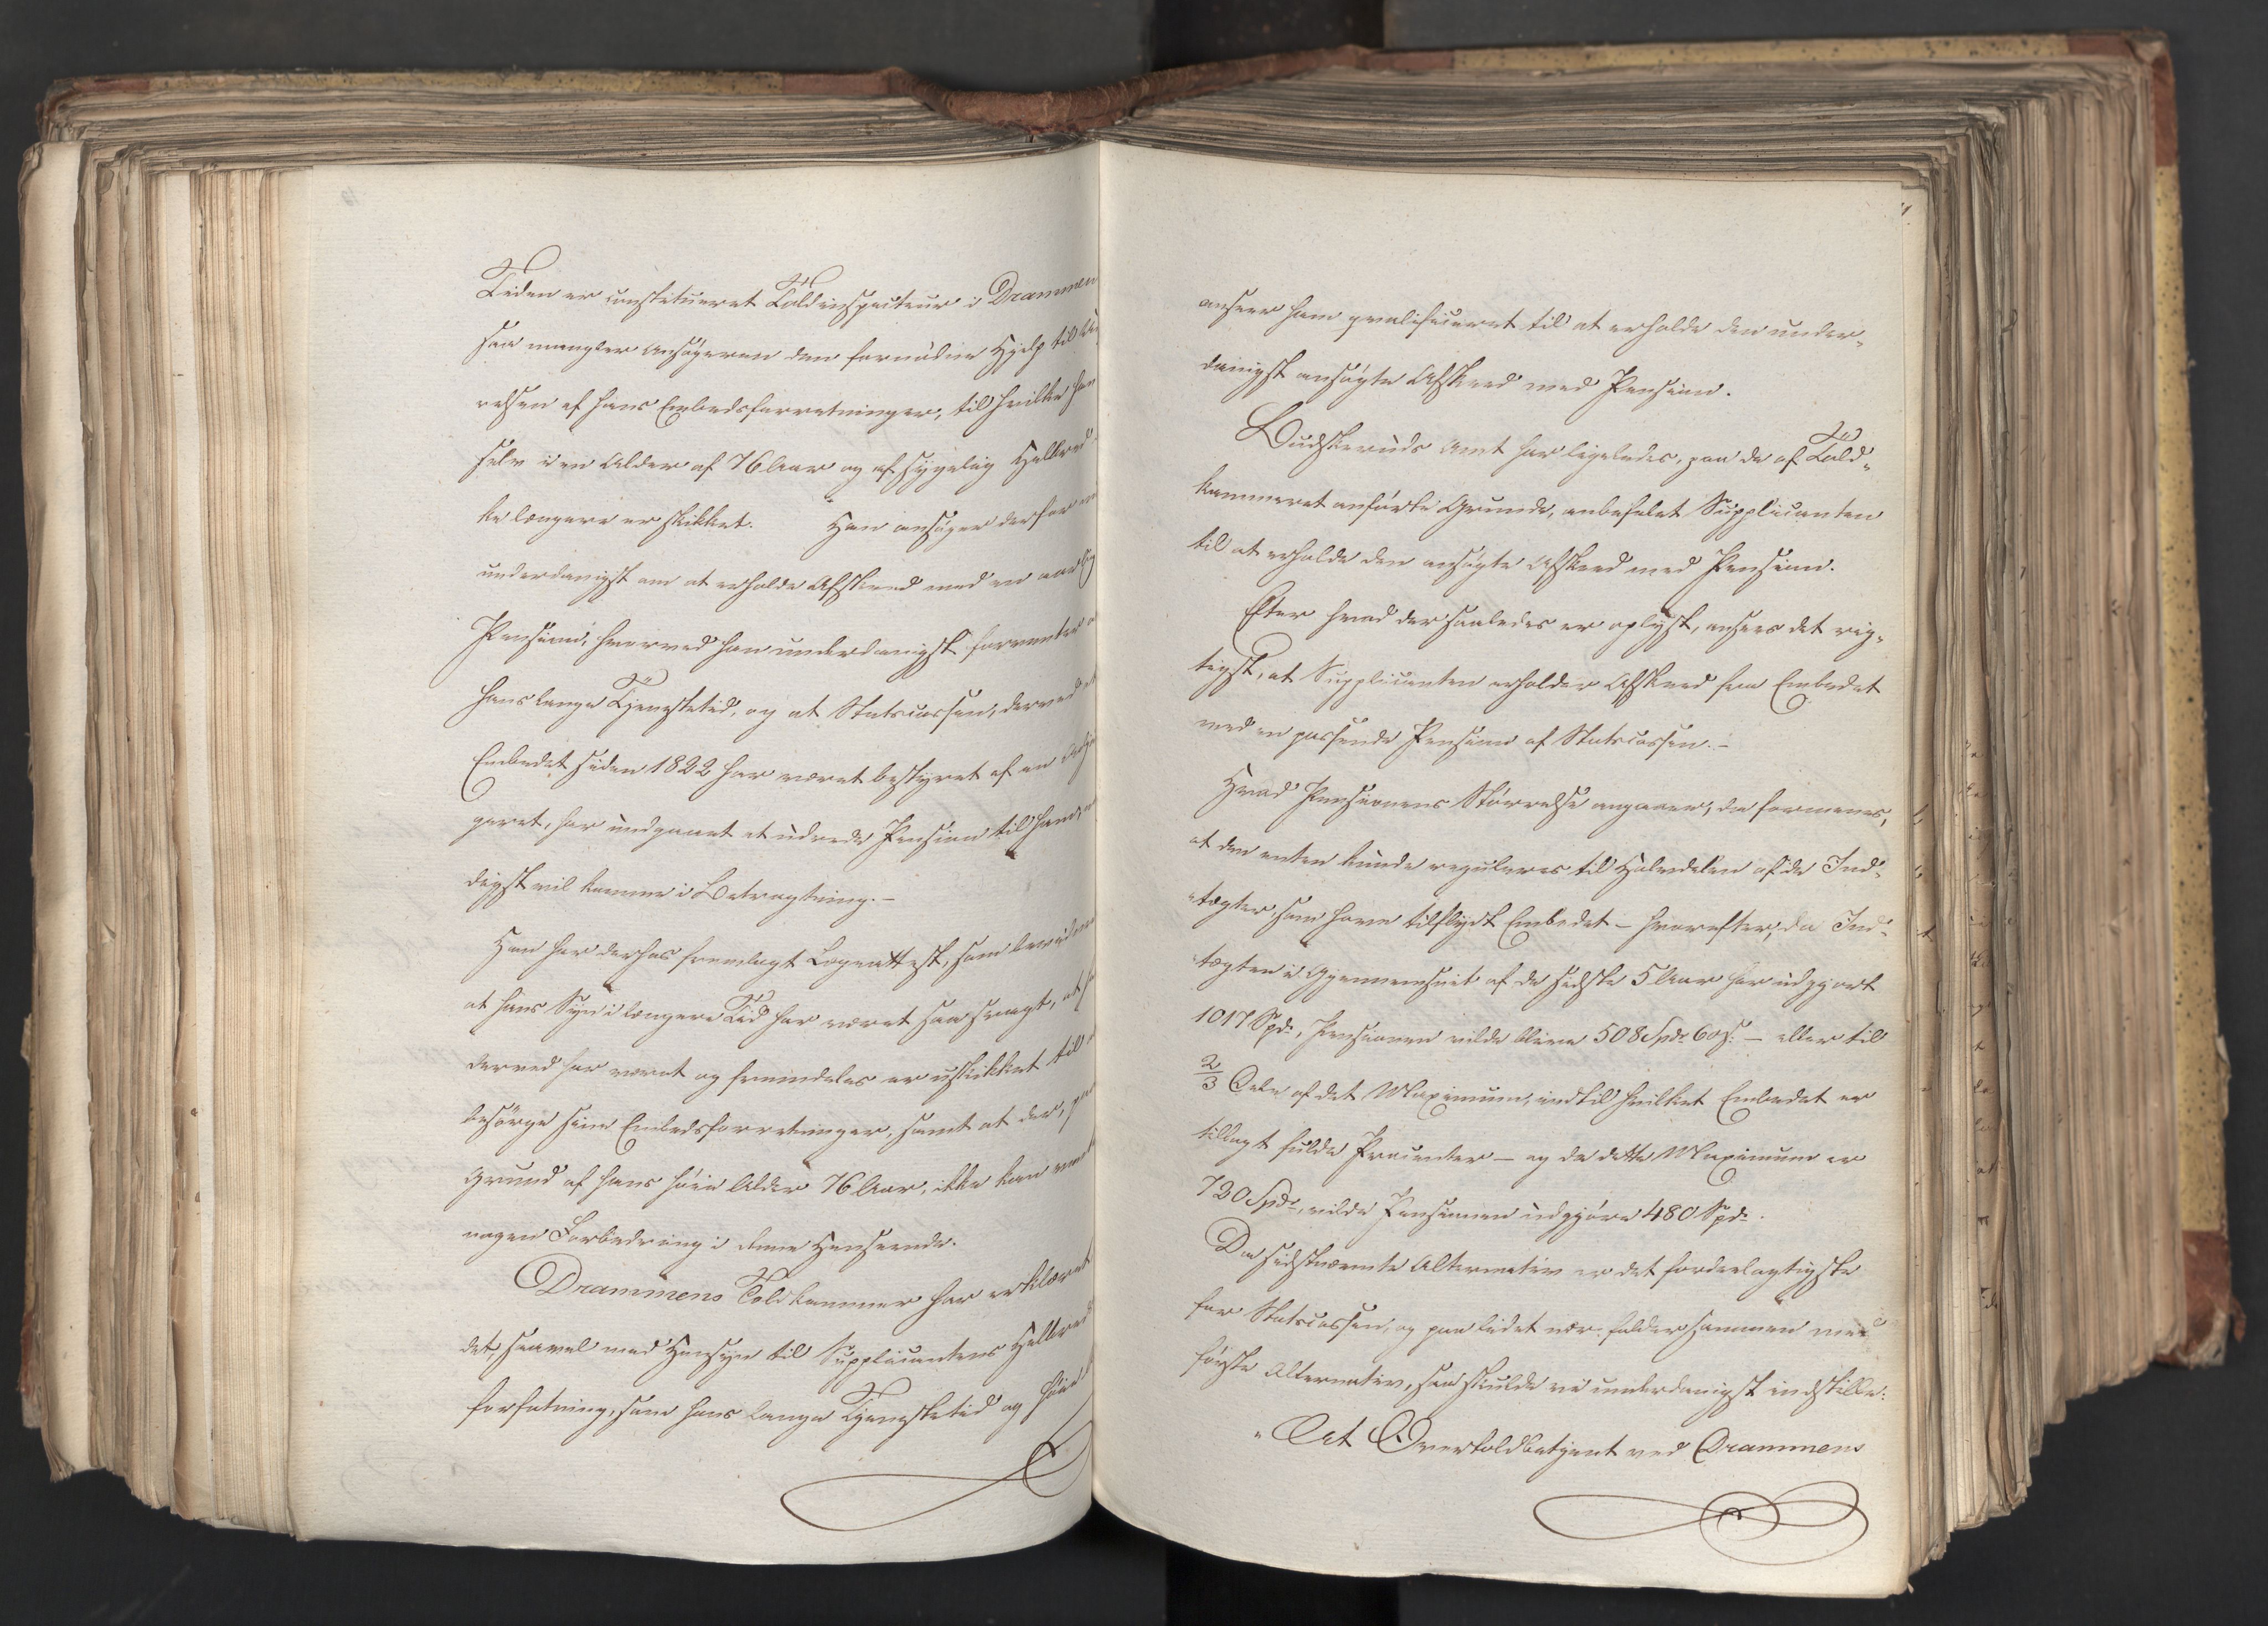 Tiden er constitueret Toldinspecteur i Drammen
saa mangler Ansøgeren den fornødne Hjelp til
relsen af hans Embedsforretninger, til hvilke han
selv i en Alder af 76 Aar og af sygelig Helbred
ke længere er skikket. Han ansøger derfor
underdanigst om at erholde Afskeed med en aarlig
Pension, hvorved han underdanigst forventer
hans lange Tjenestetid, og at Statscassen, derved at
Embedet siden 1822 har været bestyret af en
geret, har undgaaet at udrede Pension til ham,
digst vil komme i Betragtning. –
Han har derhos fremlagt Lægeattest, som
at hans Syn i længere Tid har været saa svagt, at
derved har været og fremdeles er uskikket til
besørge sine Embedsforretninger, samt at der, paa
Grund af hans høie Alder 76 Aar, ikke kan
nogen Forbedring i denne Henseende.
Drammens Toldkammer har erklæret
det, saavel med Hensyn til Supplicantens Helbred
forfatning, som hans lange Tjenestetid og høie
anseer ham qvalificeret til at erholde den under-
danigst ansøgte Afskeed med Pension.
Buskeruds Amt har ligeledes, paa de af Told-
kammeret anførte Grunde, anbefalet Supplicanten
til at erholde den ansøgte Afskeed med Pension.
Efter hvad der saaledes er oplyst, ansees det rig-
tigst, at Supplicanten erholder Afskeed fra Embedet
med en passende Pension af Statscassen. –
Hvad Pensionens Størrelse angaaer, da formenes,
at den enten kunde reguleres til Halvdelen af de Ind-
tægter, som have tilflydt Embedet – hvorefter, da Ind-
tægten i Gjennemsnit af de sidste 5 Aar har udgjort
1017 Spd, Pensionen vilde blive 508 Spd 60 s: – eller til
2/3 Dele af det Maximum, indtil hvilket Embedet er
tillagt fulde Procenter – og da dette Maximum er
720 Spd, vilde Pensionen udgjøre 480 Spd.
Da sidstnævnte Alternativ er det fordeelagtigste
for Statscassen, og paa lidet nær falder sammen med
første Alternativ, saa skulde vi underdanigst indstille:
" At Overtoldbetjent ved Drammens